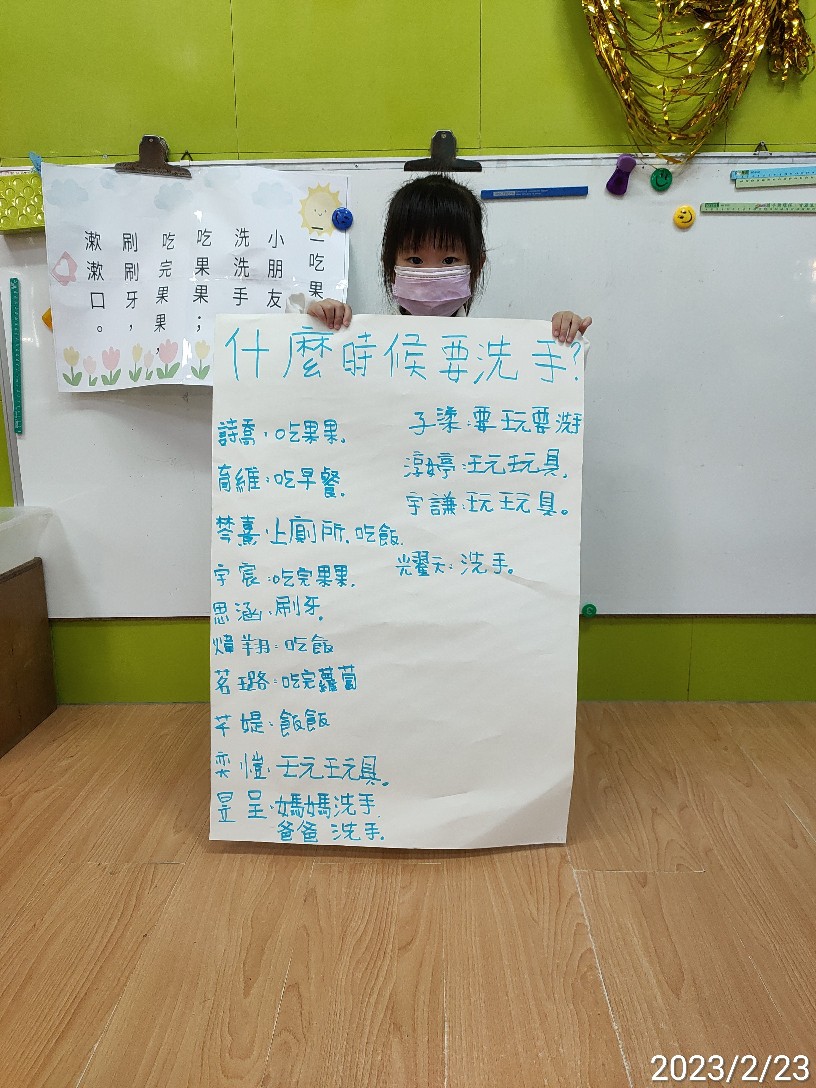 一吃果
小朋友
洗洗手
吃果果；
吃完果果，
刷刷牙，
漱漱口。
什麼時候要洗手?
詩喬：吃果果。
育維：吃早餐。
棽熹：上廁所、吃飯。
宇宸：吃完果果。
思涵：刷牙。
煒翔：吃飯
茗璐：吃完蘿蔔
芊媞：飯飯
奕愷：玩玩具。
昱呈：媽媽洗手.
爸爸洗手.
子渘：要玩要洗手
淳婷：玩玩具.
宇謙：玩玩具。
光翟天：洗手。
2023/2/23